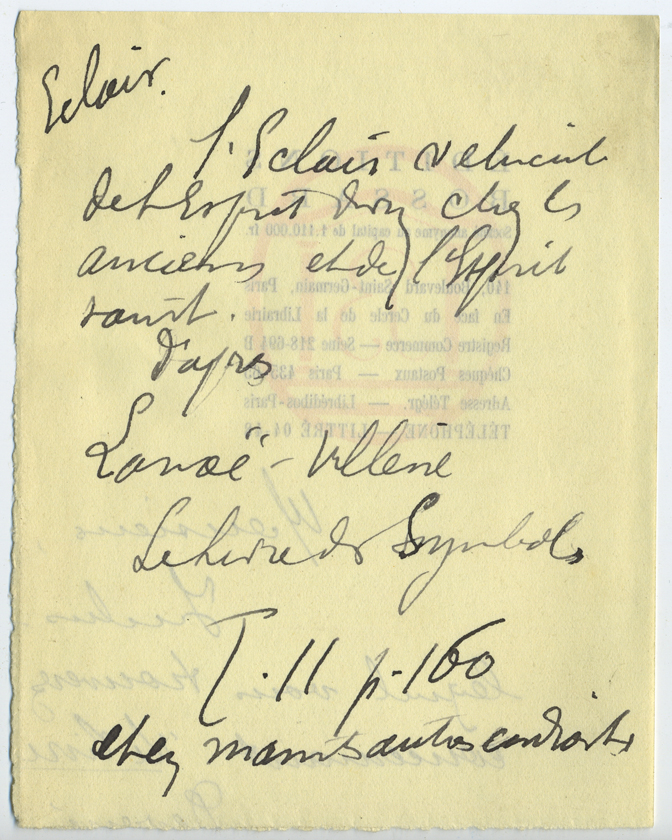 Eclair.
l'Eclair véhicule
de l'Esprit divin chez les
anciens et de l'Esprit
saint.
D'apres
Lanoë-Villène
Le Livre des Symboles
T. 11 p. 160
et en maints autres endroits
EDITIONS
BOSSARD
Société anonyme au capital de 1.110.000 fr.
140, Boulevard Saint-Germain, Paris
En face du Cercle de la Librairie
Registre Commerce — Seine 218-694 B
Chèques Postaux — Paris
Adresse Télégr. — Librédibos-Paris
TÉLÉPHONE — LITTRÉ 04
Monsieur,
lequel vous trouverez